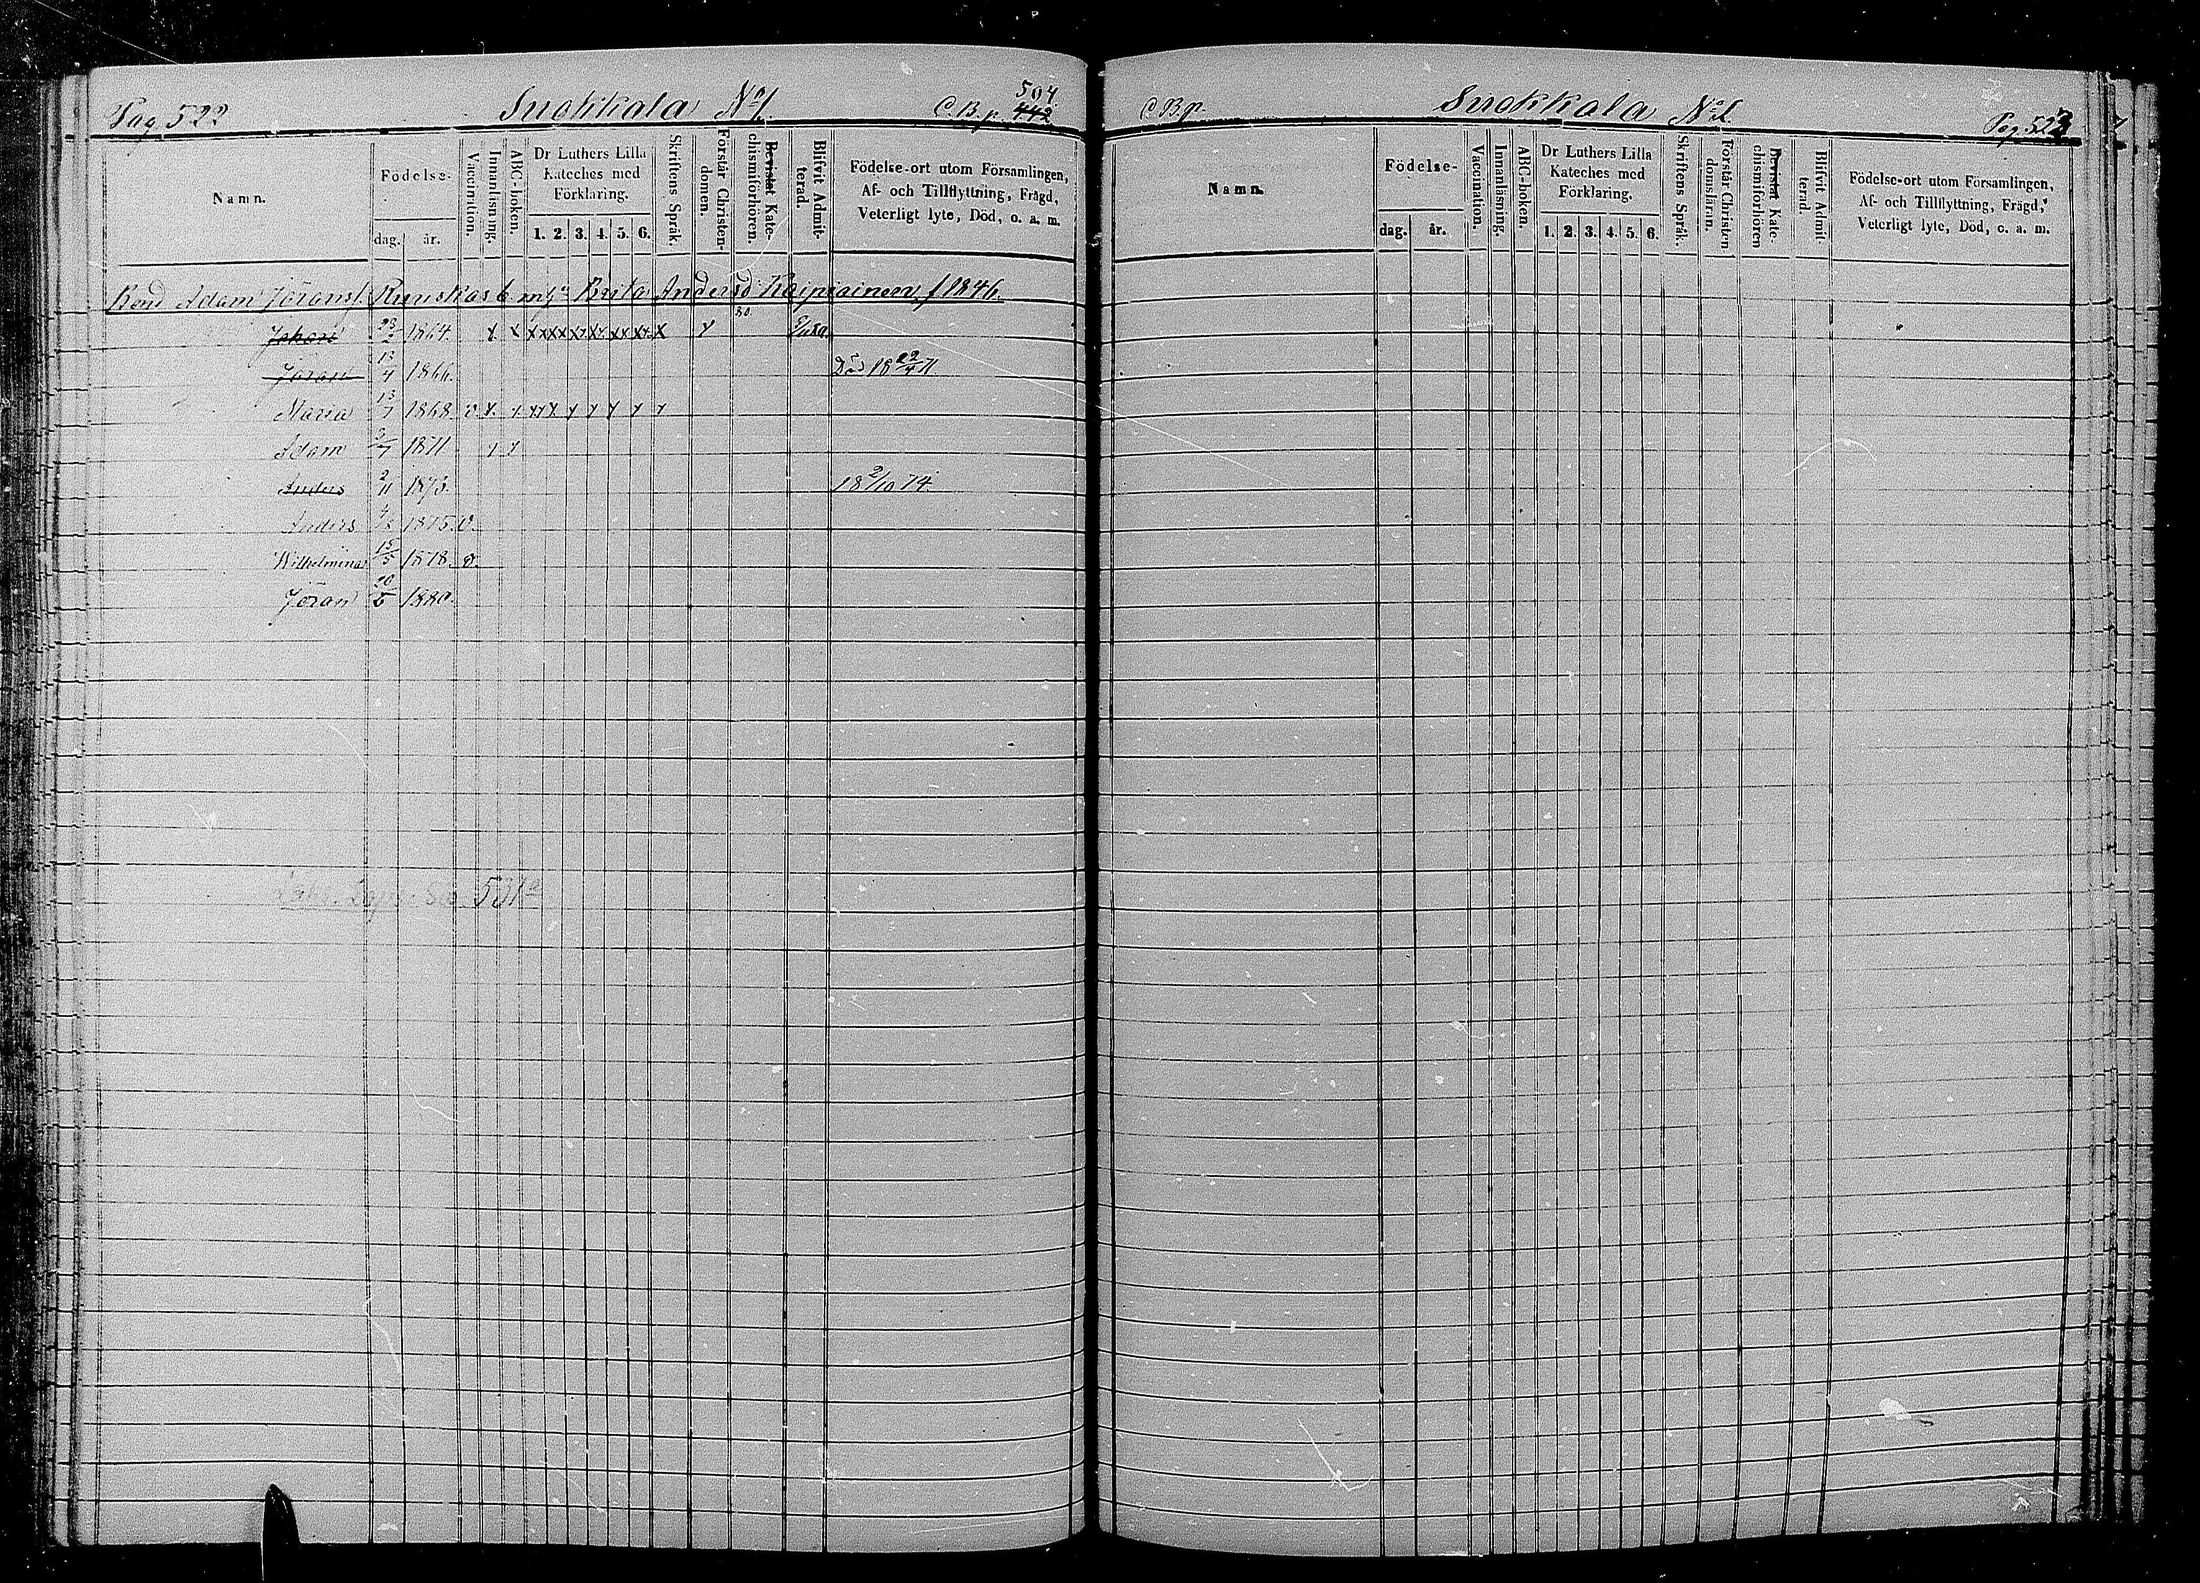 Pag 522 Suokkala No 1. C. B. p. 442 504
Namn. Födelse- dag. år. Vaccination. Innanläsning. ABC-boken. Dr Luthers Lilla Kateches med Förklaring. 1. 2. 3. 4. 5. 6. Skriftens Språk. Förstår Christendomen. Bevistat Katechismiförhören. Blifvit Admitterad. Födelse-ort utom Församlingen, Af- och Tillflyttning, Frägd, Veterligt lyte, Död, o. a. m.
Bond Adam Göransf. m. h. Brita Andersd Kaipiainen f 1846.
Johan 23/2 1864. x x xx xx xx xx xx xx x x
Jöran 13/4 1866. Död 18 22/4 71
Maria 13/7 1868 v x x xx x x x x x x
Adam 3/7 1871 x x
Anders 2/11 1873. 18 2/10 74.
Anders 1875. v.
Wilhelmina 15/5 1878. v.
Jöran 20/6 1880.
531
C. B. p. Suokkala No 1 Pag 523
Namn. Födelse- dag. år. Vaccination. Innanläsning. ABC-boken. Dr Luthers Lilla Kateches med Förklaring. 1. 2. 3. 4. 5. 6. Skriftens Språk. Förstår Christendomsläran. Bevistat Katechismiförhören Blifvit Admitterad. Födelse-ort utom Församlingen, Af- och Tillflyttning, Frägd, Veterligt lyte, Död, o. a. m.